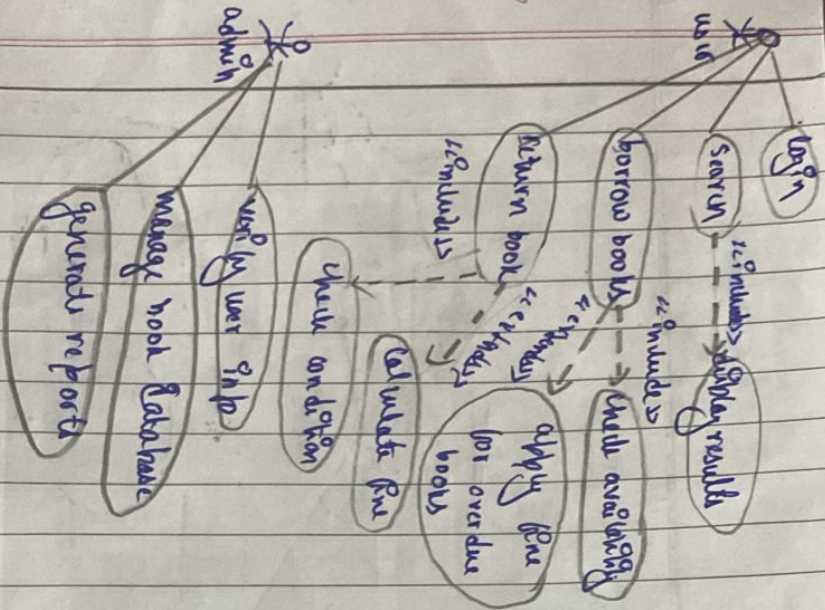 user
login
search
<<includes>>
display results
borrow books
<<includes>>
check availability
<<extends>>
apply fine
for overdue
books
return book
<<extends>>
calculate fine
<<includes>>
check condition
admin
verify user info
manage book database
generate reports